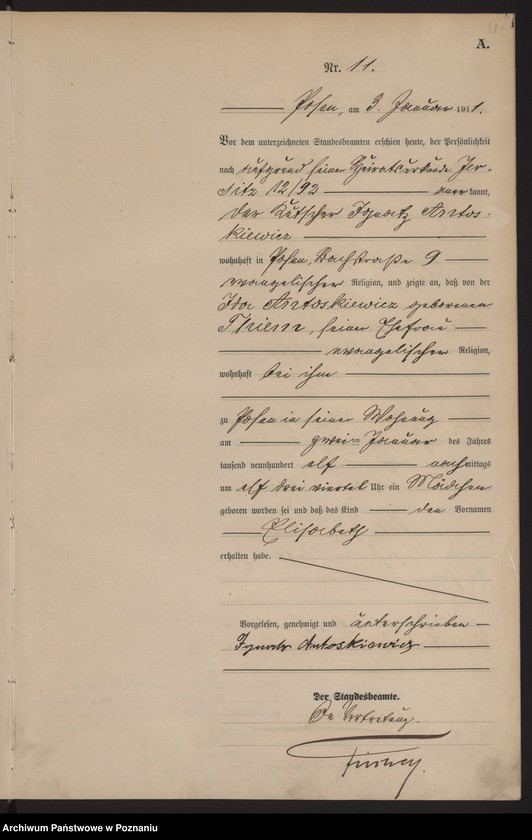 A.
Nr. 11.
Posen, am 3. Januar 1911.
Vor dem unterzeichneten Standesbeamten erschien heute, der Persönlichkeit
nach aufgrund seiner Heiratsurkunde Jer-
sitz 12/93 anerkannt,
der Kutscher Ignatz Antos-
kiewicz
wohnhaft in Posen, Bachstraße 9
evangelischer Religion, und zeigte an, daß von der
Ida Antoskiewicz geborenen
Thiem, seiner Ehefrau
evangelischer Religion,
wohnhaft bei ihm
zu Posen in seiner Wohnung
am zwei ten Januar des Jahres
tausend neunhundert elf nachmittags
um elf drei viertel Uhr ein Mädchen
geboren worden sei und daß das Kind den Vornamen
Elisabeth
erhalten habe.
Vorgelesen, genehmigt und unterschrieben
Ignatz Antoskiewicz
Der Standesbeamte.
In Vertretung.
Archiwum Państwowe w Poznaniu